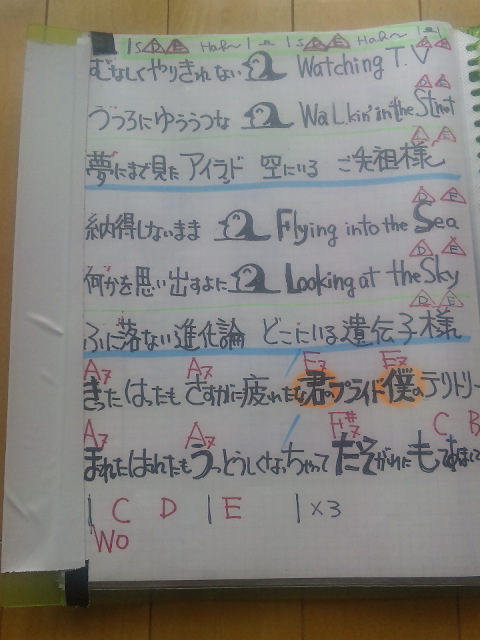 むなしくやりきれない Watching T.V
D E
うつろにゆううつな Walkin' in the Street
夢にまで見た アイランド 空にいる ご先祖様
D E
納得しないまま Flying into the Sea
D E
何かを思い出すように Looking at the Sky
D E
ふに落ない進化論 どこにいる遺伝子様
A7 A7 E7 E7
きったはったも さすがに疲れたな 君のプライド 僕のテリトリー
A7 A7 F#7 C B
まれたはれたも うっとうしくなっちゃって たそがれに
| C D | E | ×3
WO